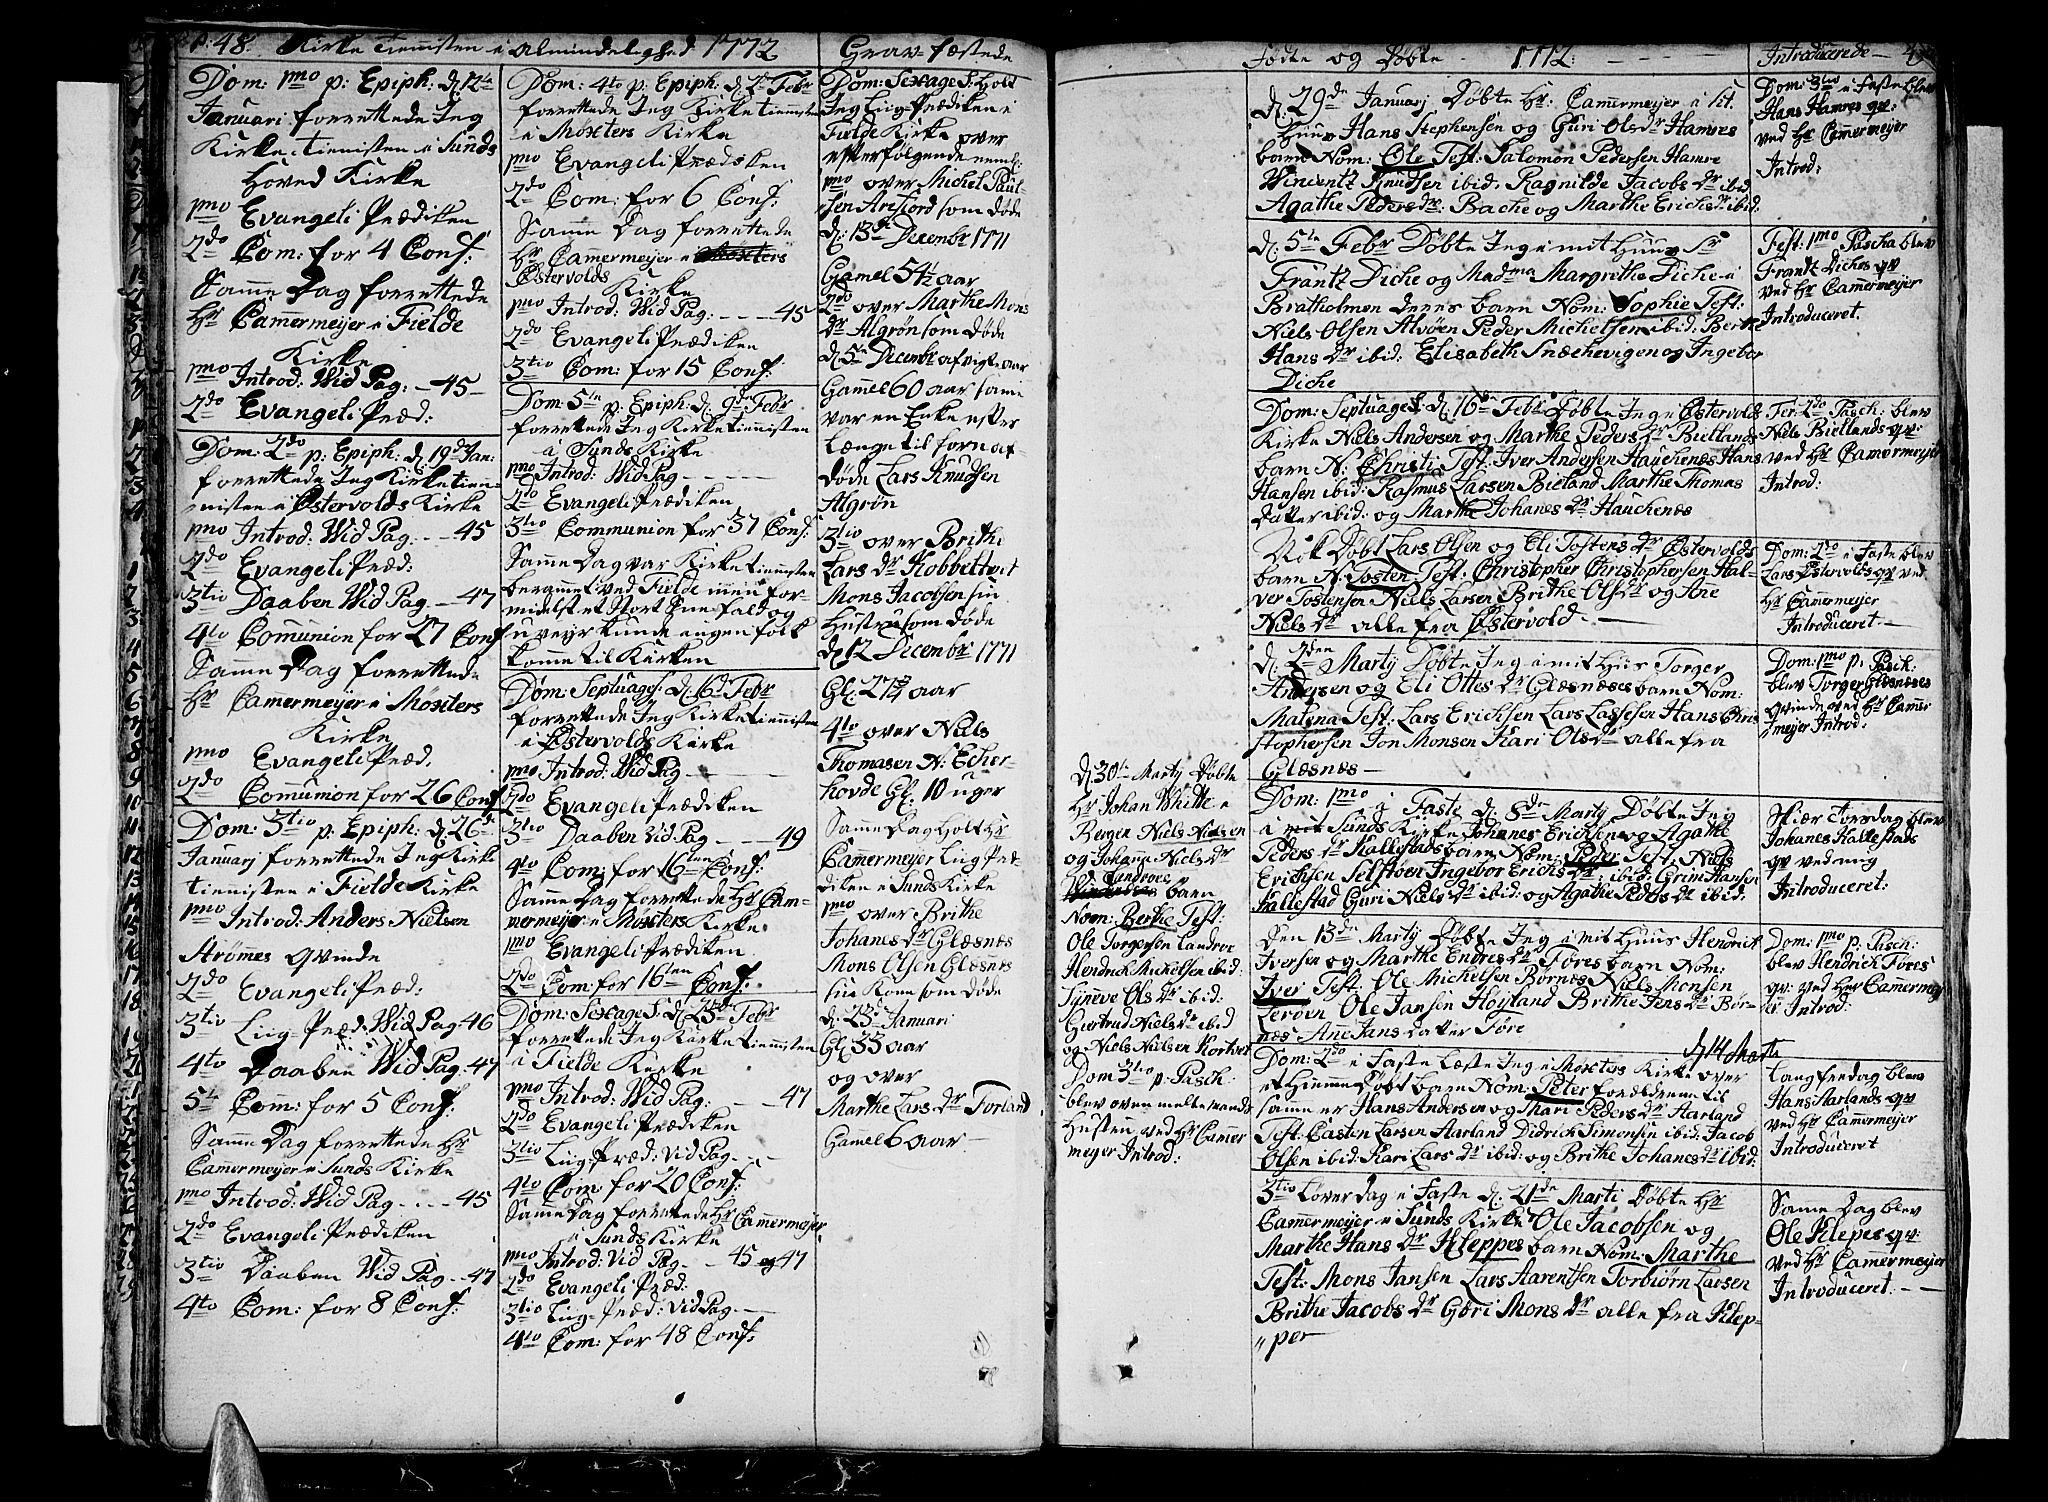 p: 48. Kirke Tienisten i Almindelighed 1772
Dom: 1mo p: Epiph: d. 12te
Januari forrettede Jeg
Kirke-tienisten i Sunds
Hoved Kirke
1mo Evangeli Prædiken
2do Com: for 4 Conf:
Samme Dag forrettede
Hr Camermeijer i Fielde
Kirke
1mo Introd: Wid Pag: - 45
2do Evangeli Præd:
Dom: 2do p: Epiph: d. 19de Jan:
forrettede Jeg Kirketien-
nisten i Østervolds Kirke
1mo Introd: Wid Pag: - - 45
2do Evangeli Præd:
3tio Daaben Wid Pag - 47
4to Comunion for 27 Conf
Samme Dag forrettede
Hr Camermeijer i Møxters
Kirke
1mo Evangeli Præd.
2do Comunion for 26 Conf
Dom: 3tio p: Epiph: d. 26de
Januarj forrettede Jeg Kirke
tienisten i Fielde Kirke
1mo Introd: Anders Nielsen
Strømes qvinde
2do Evangeli Præd:
3tio Liig-Præd: Wid Pag 46
4to Daaben Wid Pag: 47
5te Com: for 5 Conf:
Samme Dag forrettede Hr
Camermeijer i Sunds Kirke
1mo Introd: Wid Pag - - - 45
2do Evangeli Prædiken
3tio Daaben Wid Pag - - 47
4to Com: for 8 Conf:
Dom: 4to p: Epiph: d. 2de Febr
forrettede Jeg Kirketiennisten
i Møxters Kirke
1mo Evangeli Prædiken
2do Com: for 6 Conf:
Samme Dag forrettede
Hr Camermeijer i Møxters
Østervolds Kirke
1mo Introd: Wid Pag: - - - 45
2do Evangeli Prædiken
3tio Com: for 15 Conf:
Dom: 5te p: Epiph: d. 9de Febr
forrettede Jeg Kirketiennisten
i Sunds Kirke
1mo Introd: Wid Pag - - - -
2do Evangeli Prædiken
3tio Communion for 37 Conf:
Samme Dag var Kirketiennisten
berammet ved Fielde men for-
midelst et Stort Sneefald og
uveyr kunde ingen folk
komme til Kirken
Dom: Septuages: d. 16de Febr
forrettede Jeg Kirketiennisten
i Østervolds Kirke
1mo Introd: Wid Pag - - - -
2do Evangeli Prædiken
3tio Daaben Vid Pag - - - 49
4to Com: for 16ten Conf:
Samme Dag forrettede Hr Cam-
mermeijer i Møxters Kirke
1mo Evangeli Prædiken
2do Com: for 16ten Conf:
Dom: Sexages: d. 23de Febr
forrettede Jeg Kirketiennisten
i Fielde Kirke
1mo Introd: Wid Pag: - - - 47
2do Evangeli Prædiken
3tio Liig-Præd: Vid Pag - -
4to Com: for 20 Conf:
Samme Dag forrettede Hr Camermeijer
i Sunds Kirke
1mo Introd: Vid Pag - - 45 og 47
2do Evangeli Præd:
3tio Liig-Præd: Vid Pag - -
4to Com: for 48 Conf:
Grav-fæstede
Dom: Sexages: Holt
Jeg Liig-Prædiken i
Fielde Kirke over
efterfølgende neml:
1mo over Michel Paul-
sen Arefiord som døde
d. 13de Decembr 1771
Gamel 54½ aar
2do over Marthe Mons
dr Algrøn som døde
d. 5te Decembr afvigte aar
Gamel 60 aar samme
var en Enke efter
længe til forn af-
døde Lars Knudsen
Algrøn
3tio over Brithe
Lars dr Kobbeltvet
Mons Jacobsen sin
Hustru som døde
d. 12 Decembr 1771
Gl. 27 aar
4to over Niels
Thomasen N: Ecker-
hovde Gl. 10 uger
Samme Dag Holt Hr
Camermeyer Liig Præ-
diken i Sunds Kirke
1mo over Brithe
Johanes dr Glæsnæs
Mons Olsen Glæsnæs
sin Kone som Døde
d. 23de Januari
Gl. 33 aar
og over
Marthe Lars dr Torland
Gamel 6 aar -
Fødte og Døbte - 1772: - - - -
d. 29de Januarj Døbte Hr: Camermejer i sit
Huus Hans Stephensen og Guri Ols dr Hamres
barn Nom: Ole Test: Salomon Pedersen Hamre
Vincentz Knudsen ibid: Ragnilde Jacobs dr ibid
Agathe Peders dr: Bache og Marthe Erichs dr ibid:
d. 5te Febr Døbte Jeg i mit Huus Sr
Frantz Diche og Madma Margrethe Diche i
Bratholmen deres barn Nom: Sophie Test:
Niels Olsen Alvøen Peder Michelsen ibid: Berthe
Hans dr ibid: Elisabeth Snæchevigen og Ingebor
Diche
Dom: Septuages: d. 16de Febr Døbte Jeg i Østervolds
Kirke Niels Andersen og Marthe Peders dr Bielands
barn N: Christi Test: Iver Andersen Hauchenes Hans
Hansen ibid: Rasmus Larsen Bieland Marthe Thomas
datter ibid: og Marthe Johanes dr Hauchenes
Nok Døbt Lars Olsen og Eli Tostens dr Østervolds
barn N: Tosten Test: Christopher Christophersen Hal-
ver Tostensen Niels Larsen Brithe Ols dr og Ane
Niels dr alle fra Østervold - -
d. 2den Martj Døbte Jeg i mit Huus Torger
Andersen og Eli Ottes dr Glæsneses barn Nom:
Malena Test: Lars Erichsen Lars Lassesen Hans Chris
stophersen Jon Monsen Kari Ols dr alle fra
Glæsnes -
Dom: 1mo i Faste d. 8de Martj Døbte Jeg
i mit Sunds Kirke Johanes Erichsen og Agathe
Peders dr Kallestads barn Nom: Peder Test: Niels
Erichsen Selstøen Ingebor Erichs dr: ibid: Grim Hansen
Kallestad Guri Niels dr ibid: og Agathe Peders dr ibid:
Den 13de Martj Døbte Jeg i mit Huus Hendrich
Iversen og Marthe Endres dr Føres barn Nom:
Iver Test: Ole Michelsen Børnes Niels Monsen
Lerøen Ole Jansen Høyland Brithe Jens dr Bør-
næs Ane Jans datter Føre
d. 14 Marts
Dom: 2do i Faste Læste Jeg i Møxters Kirke over
et Hiemme Døbt barn Nom: Peter foreldrene til
samme er Hans Andersen og Mari Peders dr Aarland
Test: Casten Larsen Aarland Didrich Simonsen ibid: Jacob
Olsen ibid: Kari Lars dr ibid: og Brithe Johanes dr ibid:
3tio Løverdag i Faste d. 21de Marti Døbte Hr
Camermejer i Sunds Kirke Ole Jacobsen og
Marthe Hans dr Kleppes barn Nom: Marthe
Test: Mons Jansen Lars Aarentsen Torbiørn Larsen
Brithe Jacobs dr Gori Mons dr alle fra Klep-
„per
d. 30te Martj Døbte
Hr Johan Witte i
Bergen Niels Nielsen
og Johane Niels dr
Landroe
barn
Nom: Berthe Test:
Ole Torgersen Landroe
Hendrich Michelsen ibid:
Synneve Ols dr ibid:
Giertrud Niels dr ibid
og Niels Nielsen Kortvet
Dom 3tio p: Pasch:
blev ovenmelte Mands
Hustru ved Hr Camer
meyer Introd:
Introducerede - 49
Dom: 3tio i Faste blev
Hans Hamres qv:
ved Hr Camermejer
Introd:
Fest: 1mo Pascha blev
Frantz Diches qv
ved Hr Camermeyer
Introduceret.
Fer: 2do Pasch: blev
Niels Bielands qv:
ved Hr Camermeijer
Introd:
Dom: 2do i Faste blev
Lars Østervolds qv ved
Hr Camermejer
Introduceret. -
Dom: 1mo p: Pasch:
blev Torger Glæsneses
qvinde ved Hr Camer
meijer Introd:
Skier Torsdag blev
Johanes Kallestads
qv ved mig
Introduceret:
Dom: 1mo p: Pasch:
blev Hendrich Føres
qv: ved Hr Camermey
er Introd:
Langfredag blev
Hans Aarlands qv
ved Hr Camermeyer
Introduceret
Samme Dag blev
Ole Klepes qv:
ved Hr Camermeyer
Introduceret. - -